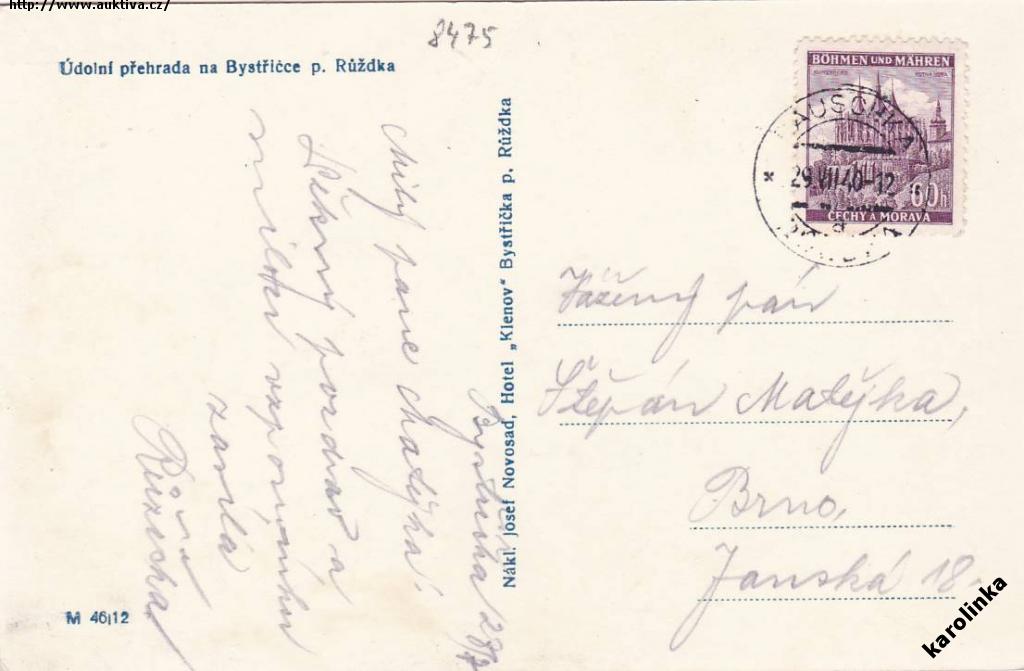 http://www.auktiva.cz/
8475
Údolní přehrada na Bystřičce p. Růždka
Milý pane Matýska!
Pěkný pozdrav a
milou vzpomínku
zasílá
Růžičková
Bystřička 28/7
M 46/12
Nákl. Josef Novosad, Hotel „Klenov" Bystřička p. Růždka
BÖHMEN UND MÄHREN
60h
ČECHY A MORAVA
RAUSCHKA
29.VII 40-12
Vážený pán
Štěpán Matějka,
Brno,
Janská 18.
karolinka